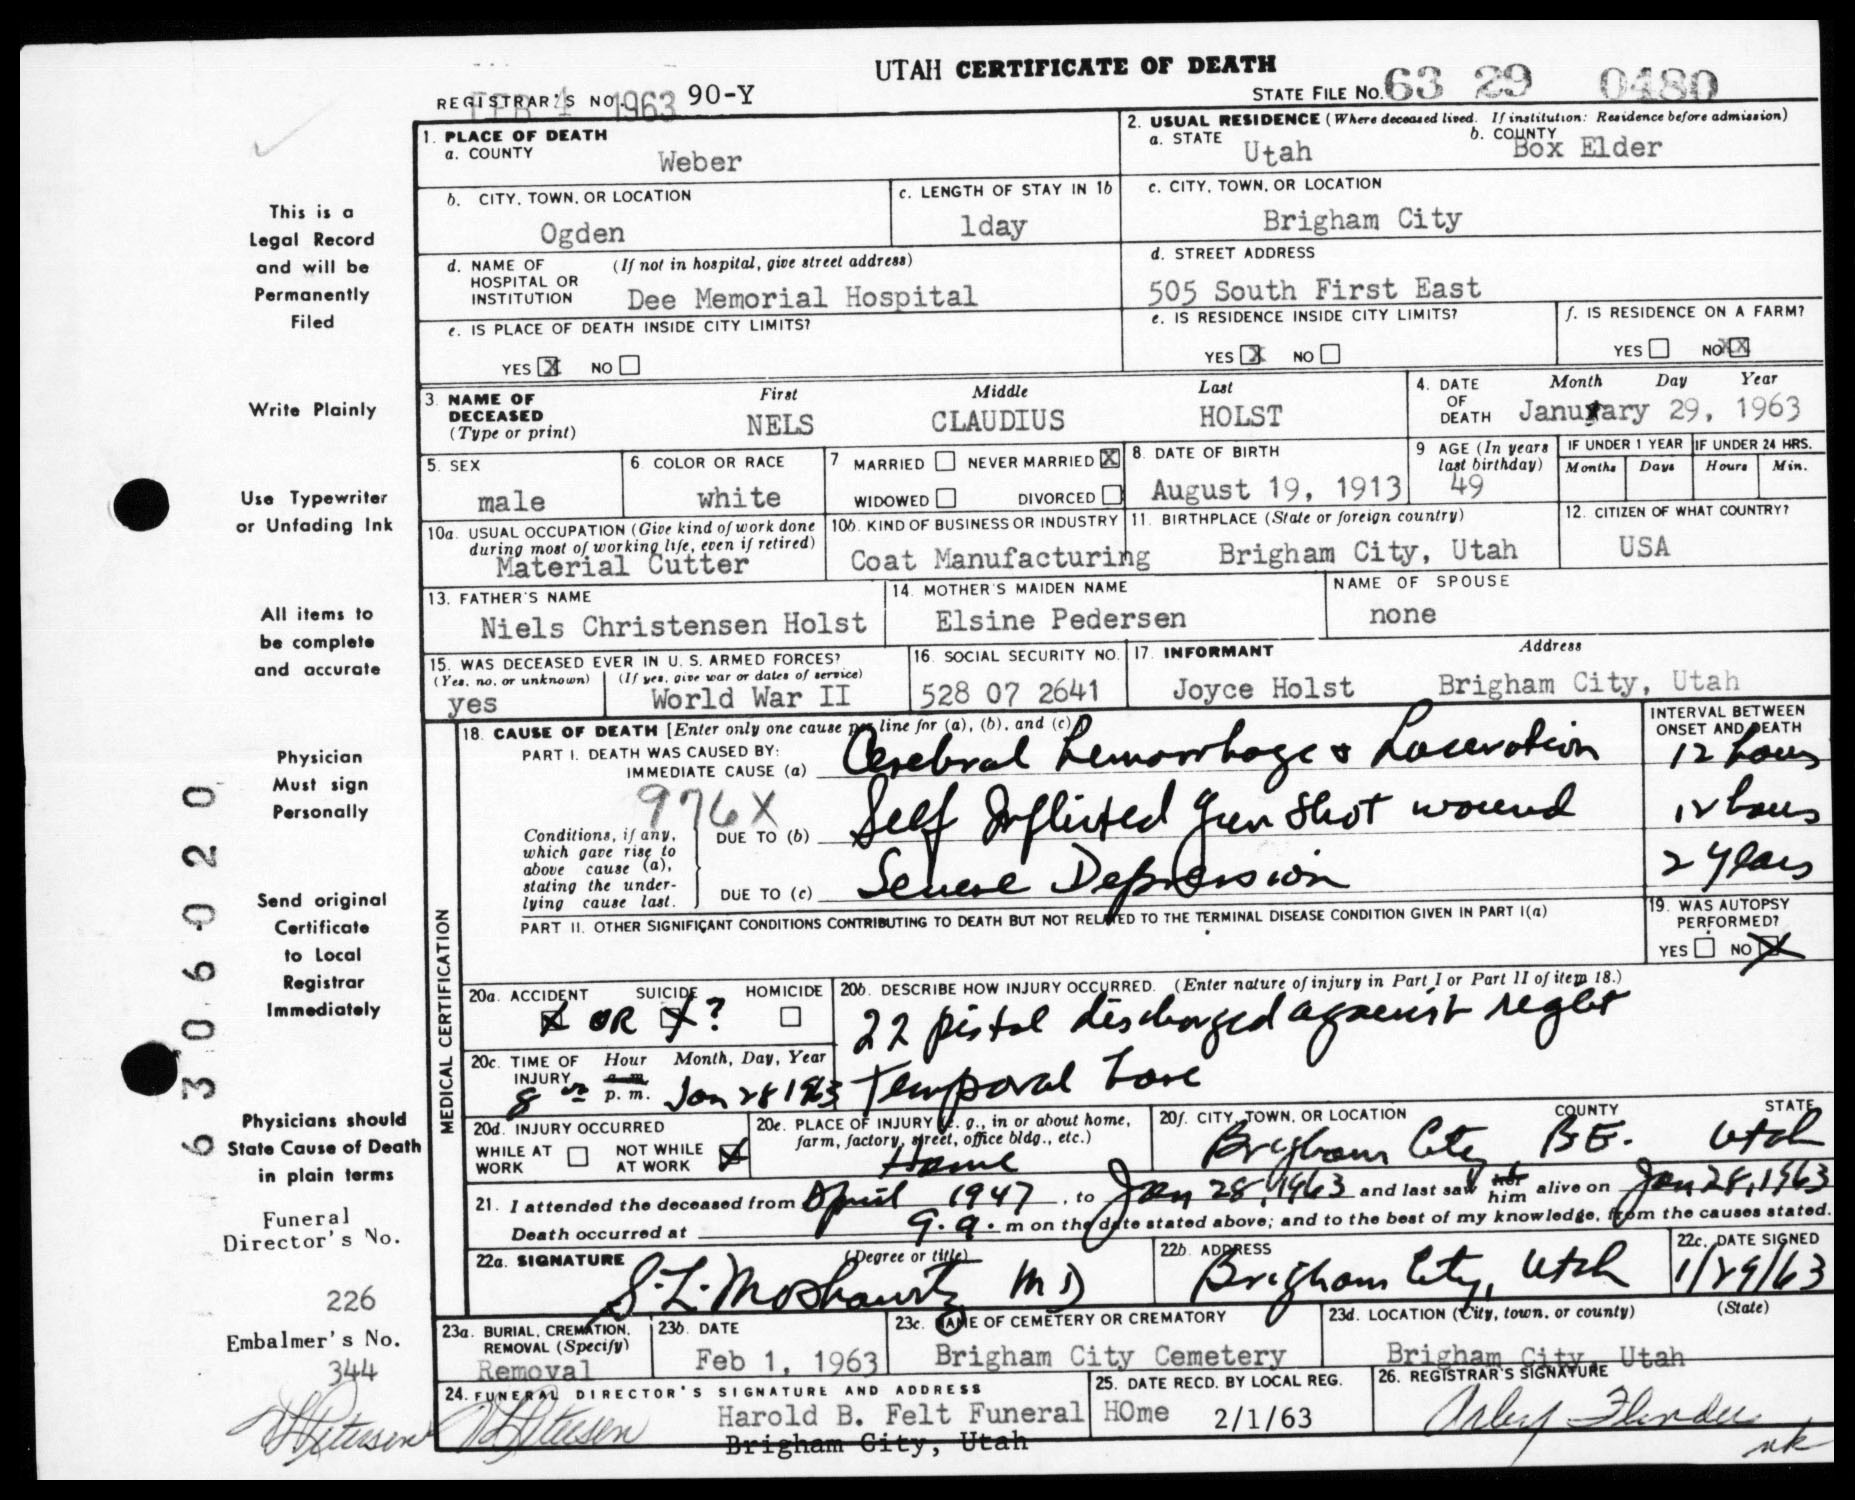 UTAH CERTIFICATE OF DEATH
REGISTRAR'S NO. 90-Y
FEB 4 1963
STATE FILE NO. 63 29 0480
1. PLACE OF DEATH
a. COUNTY
Weber
2. USUAL RESIDENCE (Where deceased lived. If institution: Residence before admission)
a. STATE Utah
b. COUNTY Box Elder
b. CITY, TOWN, OR LOCATION
Ogden
c. LENGTH OF STAY IN 1b
1day
c. CITY, TOWN, OR LOCATION
Brigham City
d. NAME OF HOSPITAL OR INSTITUTION (If not in hospital, give street address)
Dee Memorial Hospital
d. STREET ADDRESS
505 South First East
e. IS PLACE OF DEATH INSIDE CITY LIMITS?
YES X NO
e. IS RESIDENCE INSIDE CITY LIMITS?
YES X NO
f. IS RESIDENCE ON A FARM?
YES NO XX
3. NAME OF DECEASED (Type or print)
First Middle Last
NELS CLAUDIUS HOLST
4. DATE OF DEATH Month Day Year
January 29, 1963
5. SEX
male
6. COLOR OR RACE
white
7 MARRIED NEVER MARRIED X
WIDOWED DIVORCED
8. DATE OF BIRTH
August 19, 1913
9 AGE (In years last birthday)
49
IF UNDER 1 YEAR
Months Days
IF UNDER 24 HRS.
Hours Min.
10a. USUAL OCCUPATION (Give kind of work done during most of working life, even if retired)
Material Cutter
10b. KIND OF BUSINESS OR INDUSTRY
Coat Manufacturing
11. BIRTHPLACE (State or foreign country)
Brigham City, Utah
12. CITIZEN OF WHAT COUNTRY?
USA
13. FATHER'S NAME
Niels Christensen Holst
14. MOTHER'S MAIDEN NAME
Elsine Pedersen
NAME OF SPOUSE
none
15. WAS DECEASED EVER IN U. S. ARMED FORCES?
(Yes, no, or unknown) (If yes, give war or dates of service)
yes World War II
16. SOCIAL SECURITY NO.
528 07 2641
17. INFORMANT Address
Joyce Holst Brigham City, Utah
18. CAUSE OF DEATH [Enter only one cause per line for (a), (b), and (c)]
PART I. DEATH WAS CAUSED BY:
IMMEDIATE CAUSE (a) Cerebral hemorrhage & Laceration
INTERVAL BETWEEN ONSET AND DEATH
12 hours
976X
Conditions, if any, which gave rise to above cause (a), stating the underlying cause last.
DUE TO (b) Self Inflicted gun shot wound
12 hours
DUE TO (c) Severe Depression
2 years
PART II. OTHER SIGNIFICANT CONDITIONS CONTRIBUTING TO DEATH BUT NOT RELATED TO THE TERMINAL DISEASE CONDITION GIVEN IN PART I(a)
19. WAS AUTOPSY PERFORMED?
YES NO X
MEDICAL CERTIFICATION
20a. ACCIDENT SUICIDE HOMICIDE
X OR X ?
20b. DESCRIBE HOW INJURY OCCURRED. (Enter nature of injury in Part I or Part II of item 18.)
22 pistol discharged against right
Temporal
20c. TIME OF INJURY Hour Month, Day, Year
8 a.m. p.m. Jan 28 1963
20d. INJURY OCCURRED
WHILE AT WORK NOT WHILE AT WORK X
20e. PLACE OF INJURY (e. g., in or about home, farm, factory, street, office bldg., etc.)
Home
20f. CITY, TOWN, OR LOCATION COUNTY STATE
Brigham City B.E. Utah
21. I attended the deceased from April 1947, to Jan 28, 1963 and last saw her him alive on Jan 28, 1963
Death occurred at 9. a. m on the date stated above; and to the best of my knowledge, from the causes stated.
22a. SIGNATURE (Degree or title)
S. L. Moskowitz MD
22b. ADDRESS
Brigham City, Utah
22c. DATE SIGNED
1/29/63
23a. BURIAL, CREMATION, REMOVAL (Specify)
Removal
23b. DATE
Feb 1, 1963
23c. NAME OF CEMETERY OR CREMATORY
Brigham City Cemetery
23d. LOCATION (City, town, or county) (State)
Brigham City, Utah
24. FUNERAL DIRECTOR'S SIGNATURE AND ADDRESS
Harold B. Felt Funeral HOme
Brigham City, Utah
25. DATE RECD. BY LOCAL REG.
2/1/63
26. REGISTRAR'S SIGNATURE
nk
This is a
Legal Record
and will be
Permanently
Filed
Write Plainly
Use Typewriter
or Unfading Ink
All items to
be complete
and accurate
Physician
Must sign
Personally
Send original
Certificate
to Local
Registrar
Immediately
Physicians should
State Cause of Death
in plain terms
Funeral
Director's No.
226
Embalmer's No.
344
6306020